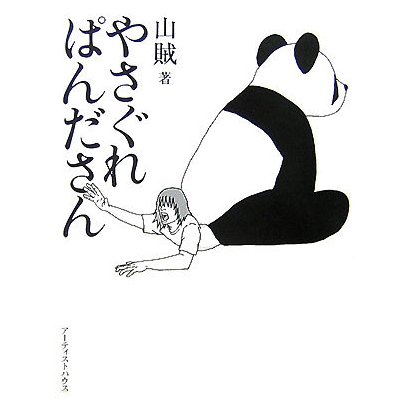 山賊 著
やさぐれ
ぱんださん
アーティストハウス